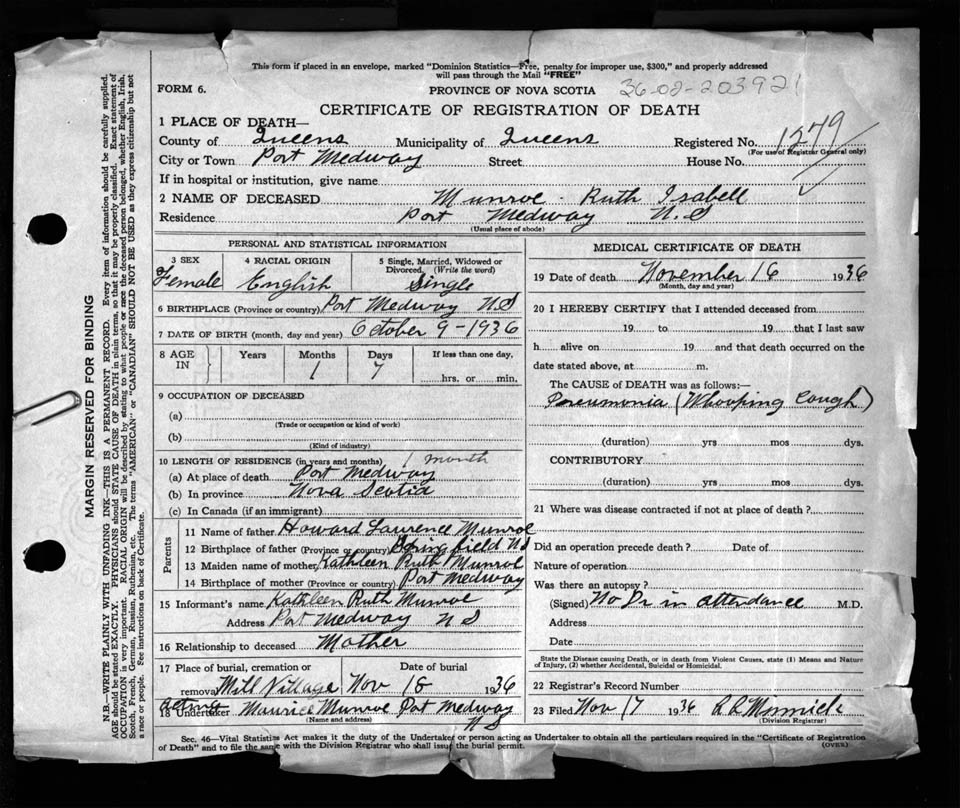 This form if placed in an envelope, marked "Dominion Statistics—Free, penalty for improper use, $300," and properly addressed
will pass through the Mail "FREE"
FORM 6.
PROVINCE OF NOVA SCOTIA 36-02-203921
CERTIFICATE OF REGISTRATION OF DEATH
1 PLACE OF DEATH—
County of Queens Municipality of Queens Registered No. 1279
(For use of Registrar General only)
City or Town Port Medway Street House No.
If in hospital or institution, give name
2 NAME OF DECEASED Munroe Ruth Isabell
Residence Port Medway N.S
(Usual place of abode)
PERSONAL AND STATISTICAL INFORMATION
3 SEX 4 RACIAL ORIGIN 5 Single, Married, Widowed or
Divorced. (Write the word)
Female English Single
6 BIRTHPLACE (Province or country) Port Medway N S
7 DATE OF BIRTH (month, day and year) October 9-1936
8 AGE IN Years Months Days If less than one day,
1 7 hrs. or min.
9 OCCUPATION OF DECEASED
(a)
(Trade or occupation or kind of work)
(b)
(Kind of industry)
10 LENGTH OF RESIDENCE (in years and months) 1 month
(a) At place of death Port Medway
(b) In province Nova Scotia
(c) In Canada (if an immigrant)
Parents
11 Name of father Howard Lawrence Munroe
12 Birthplace of father (Province or country) Springfield NS
13 Maiden name of mother Kathleen Ruth Munroe
14 Birthplace of mother (Province or country) Port Medway
15 Informant's name Kathleen Ruth Munroe
Address Port Medway N S
16 Relationship to deceased Mother
17 Place of burial, cremation or Date of burial
removal Mill Village Nov 18 1936
acting
18 Undertaker Maurice Munroe Port Medway
(Name and address) N S
MEDICAL CERTIFICATE OF DEATH
19 Date of death November 16 1936
(Month, day and year)
20 I HEREBY CERTIFY that I attended deceased from
19 to 19 that I last saw
h alive on 19 and that death occurred on the
date stated above, at m.
The CAUSE of DEATH was as follows:—
Pneumonia (Whooping Cough)
(duration) yrs mos dys.
CONTRIBUTORY
(duration) yrs mos dys.
21 Where was disease contracted if not at place of death?
Did an operation precede death? Date of
Nature of operation
Was there an autopsy?
(Signed) No Dr in attendance M.D.
Address
Date
State the Disease causing Death, or in death from Violent Causes, state (1) Means and Nature
of Injury, (2) whether Accidental, Suicidal or Homicidal.
22 Registrar's Record Number
23 Filed Nov 17 1936
(Division Registrar)
Sec. 46—Vital Statistics Act makes it the duty of the Undertaker or person acting as Undertaker to obtain all the particulars required in the "Certificate of Registration
of Death" and to file the same with the Division Registrar who shall issue the burial permit. (OVER)
MARGIN RESERVED FOR BINDING
N.B.—WRITE PLAINLY WITH UNFADING INK—THIS IS A PERMANENT RECORD. Every item of information should be carefully supplied.
AGE should be stated EXACTLY. PHYSICIANS should STATE CAUSE OF DEATH in plain terms, so that it may be properly classified. Exact statement of
OCCUPATION is very important. RACIAL ORIGIN will be described by stating to what people or race the deceased person belonged, whether English, Irish,
Scotch, French, German, Russian, Ruthenian, etc. The terms "AMERICAN" or "CANADIAN" SHOULD NOT BE USED as they express citizenship but not
a race or people. See instructions on back of Certificate.